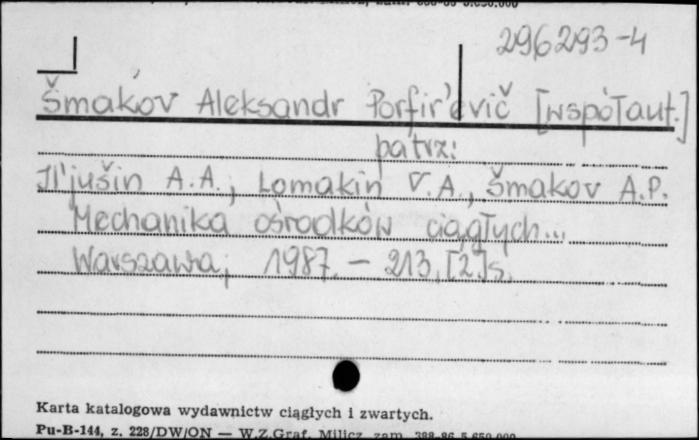 296293-4
Šmakov Aleksandr Porfir'evič [współaut.]
patrz:
Il'jušin A.A., Lomakin V.A., Šmakov A.P.
Mechanika ośrodków ciągłych...
Warszawa, 1987. – 213, [2] s.
Karta katalogowa wydawnictw ciągłych i zwartych.
Pu-B-144, z. 228/DW/ON — W.Z.Graf. Milicz zam. 388-86 5.650.000